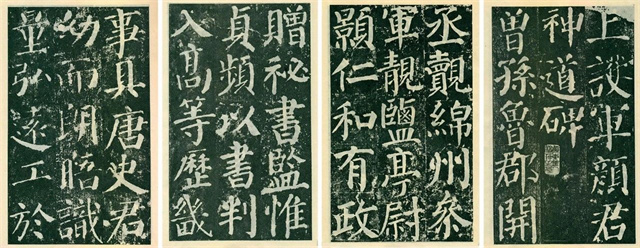 上護軍顏君
神道碑
曾孫魯郡開
丞覿綿州參
軍靚鹽亭尉
顥仁和有政
贈祕書監惟
貞頻以書判
入髙等歷畿
事具唐史君
幼而朗晤識
量弘遠工於